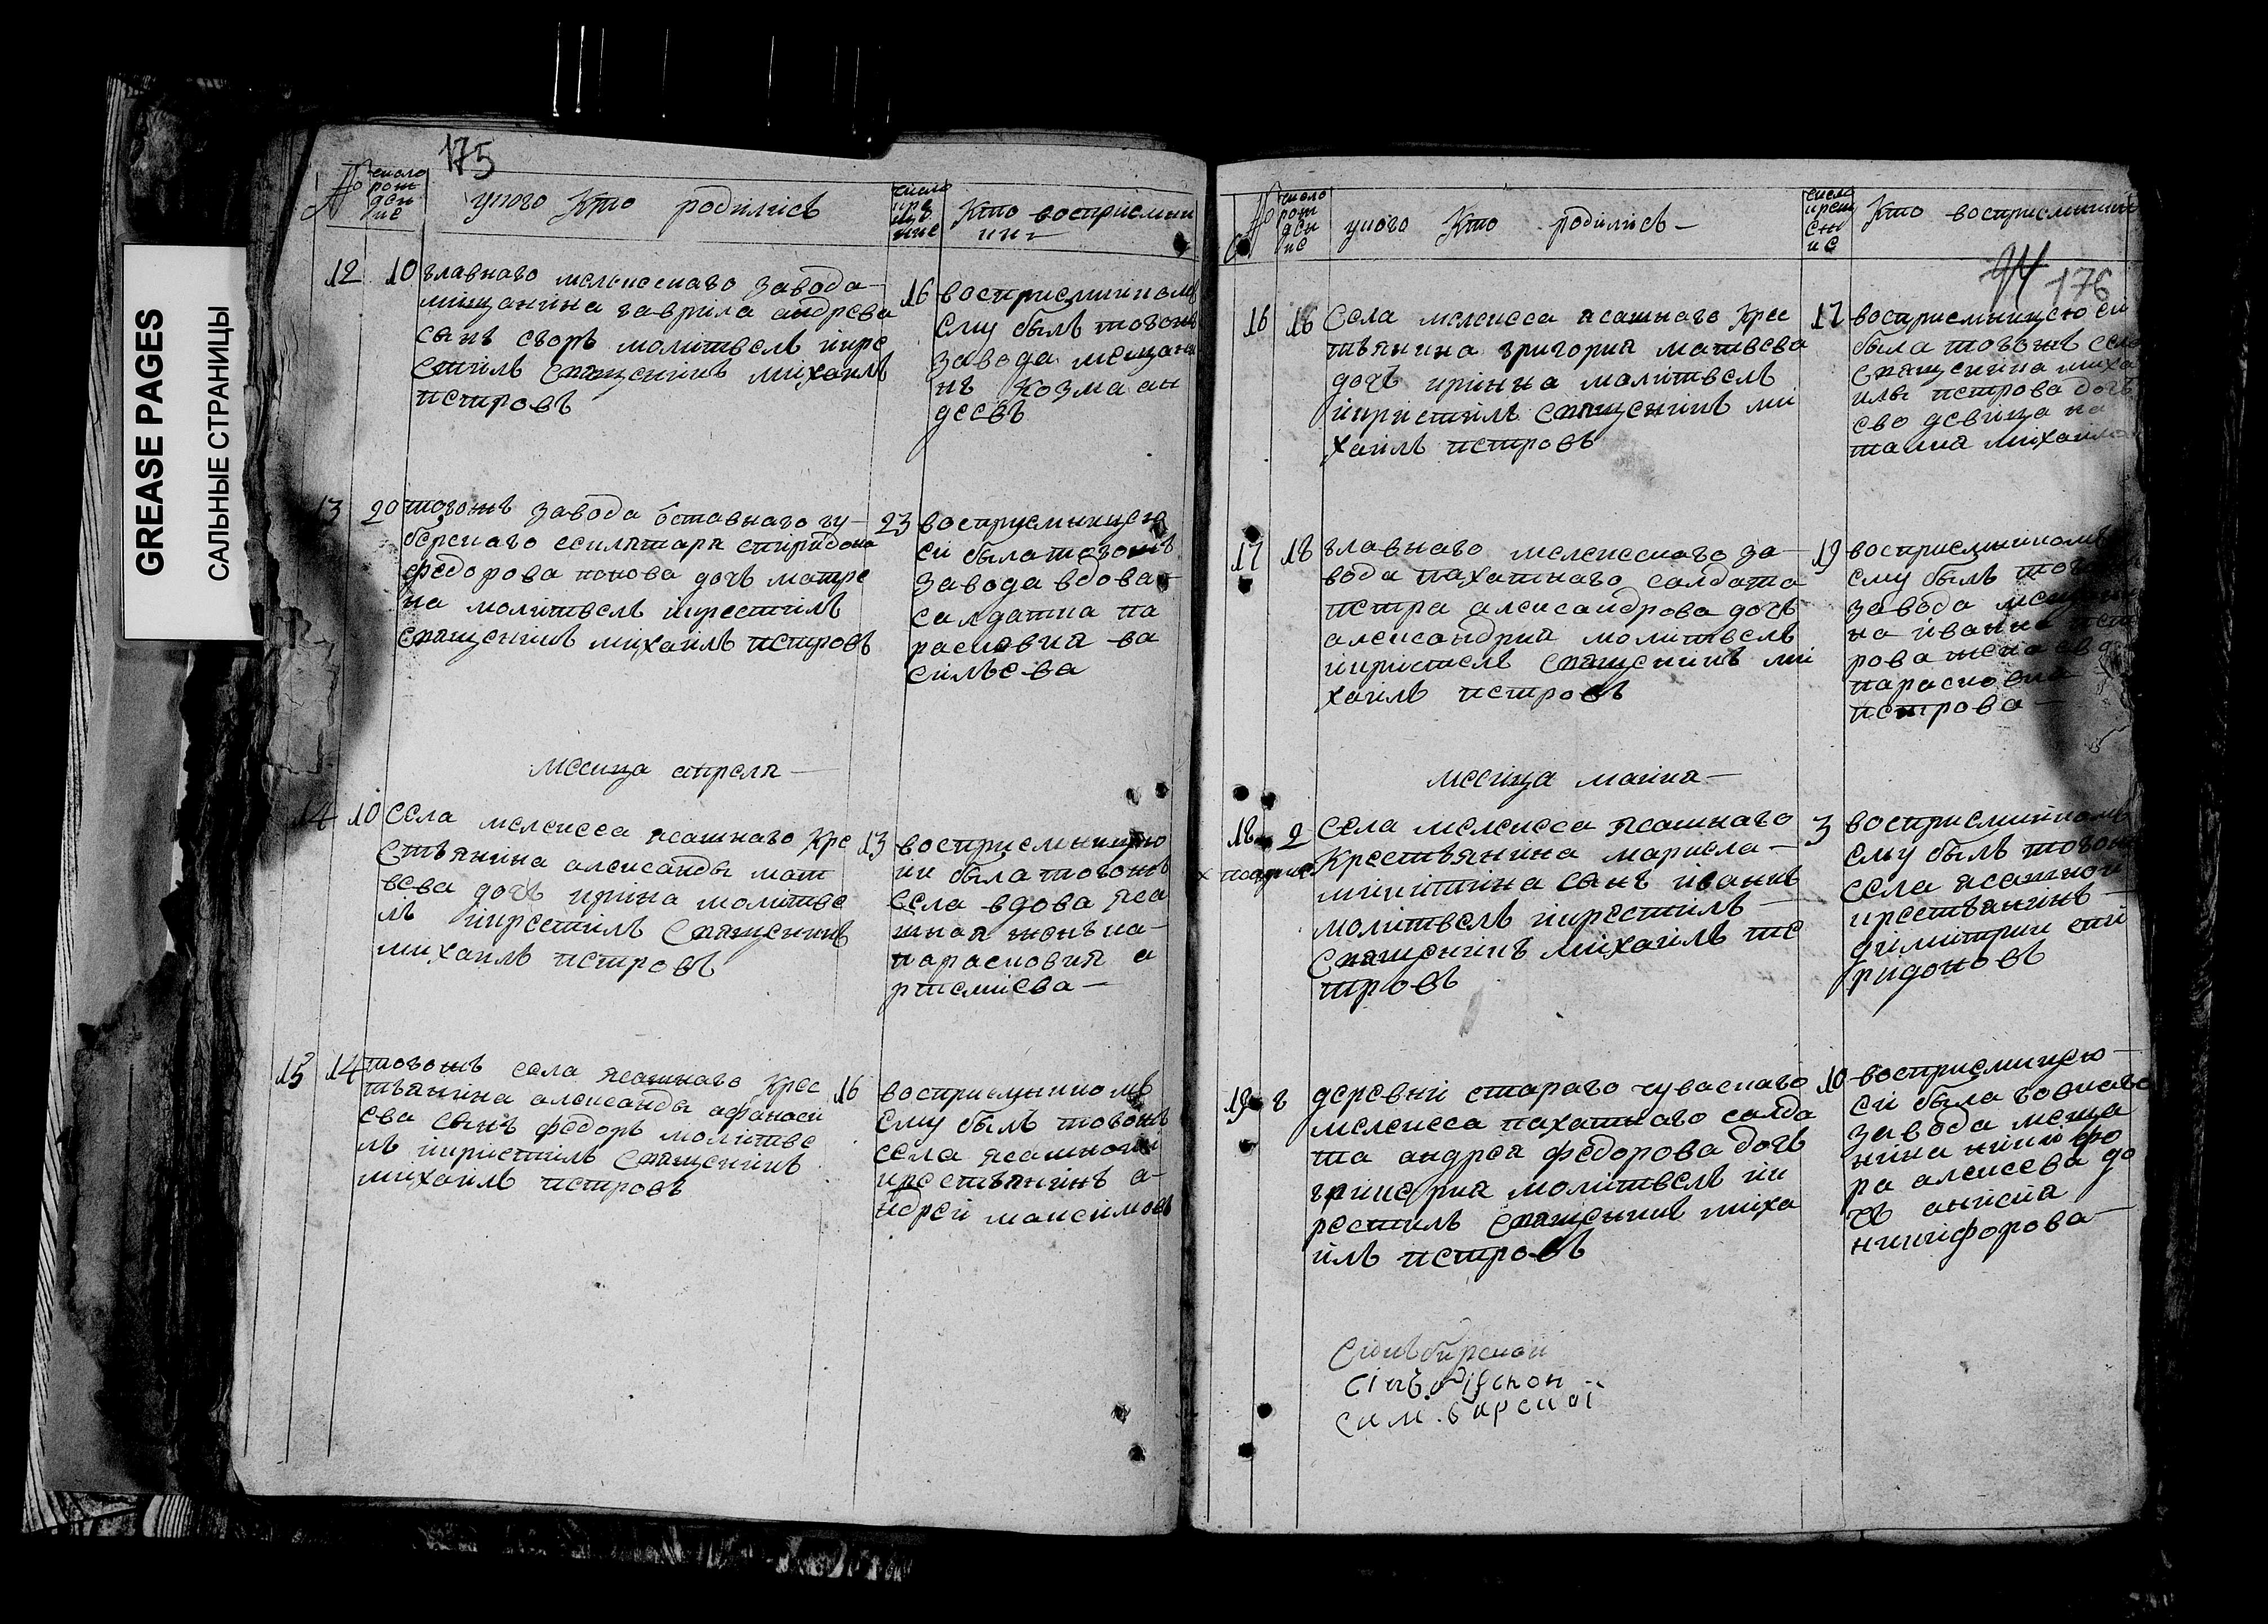 GREASE PAGES
САЛЬНЫЕ СТРАНИЦЫ
175
№
число рождение
укого Кто родились
число крещение
Кто восприемники
12 10
главнаго мелекескаго завода
мищанина гаврила андрева
сынъ егоръ молитвелъ и кре
стилъ священникъ михаилъ
петровъ
16
восприемникомъ
ему былъ тогожъ
завода мещани
нъ козма
13 20
тогожъ завода отавнаго гу
берскаго секлатаря спиридона
федорова попова дочь матре
на молитвелъ икрестилъ
священникъ михаилъ петровъ
23
восприемницею
ей была тогожъ
завода вдова
салдатка па
расковия ва
сильева
месица апреля
14 10
села мелекеса ясашнаго кре
стьянина александы мат
веева дочь ирина молитве
лъ икрестилъ священникъ
михаилъ петровъ
13
восприемницею
ии была тогожъ
села вдова яса
шная жонъка
парасковия а
ртемиева
15 14
тогожъ села ясашнаго крес
тьянина александы афанаси
ева сынъ федоръ молитве
лъ икристилъ священникъ
михаилъ петровъ
16
восприемникомъ
ему былъ тогожъ
села ясашной
крестьянинъ а
ндрей максимовъ
№
число рождение
укого Кто родились
число крещение
Кто восприемники
94 176
16 16
Села мелекеса ясашнаго крес
тьянина григория матвеева
дочь ирина молитвелъ
икристилъ священникъ ми
хаилъ петровъ
17
восприемницею ей
была тогожъ села
священика миха
илы петрова дочь
ево девица на
талия михаило
17 18
главнаго мелекескаго за
вода пахатнаго салдата
петра александрова дочь
александрия молитвелъ
икристелъ священникъ ми
хаилъ петровъ
19
восприемникомъ
ему былъ
завода
на ивана
рова жена ево
парасковия
петрова
месица маия
18 2
села мелекеса ясашнаго
крестьянина
микитина сынъ иванъ
молитвелъ икрестилъ
священникъ михаилъ пе
тровъ
3
восприемникомъ
ему былъ тогожъ
села ясашной
крестьянинъ
димитрий спи
ридоновъ
19 8
деревни стараго чуваскаго
мелекеса пахатнаго салда
та андрея федорова дочь
гликерия молитвелъ ик
рестилъ священикъ миха
илъ петровъ
10
восприемницею
ей была
завода меща
нина
ра алексева до
чь анисия
никифорова
Синьбирской